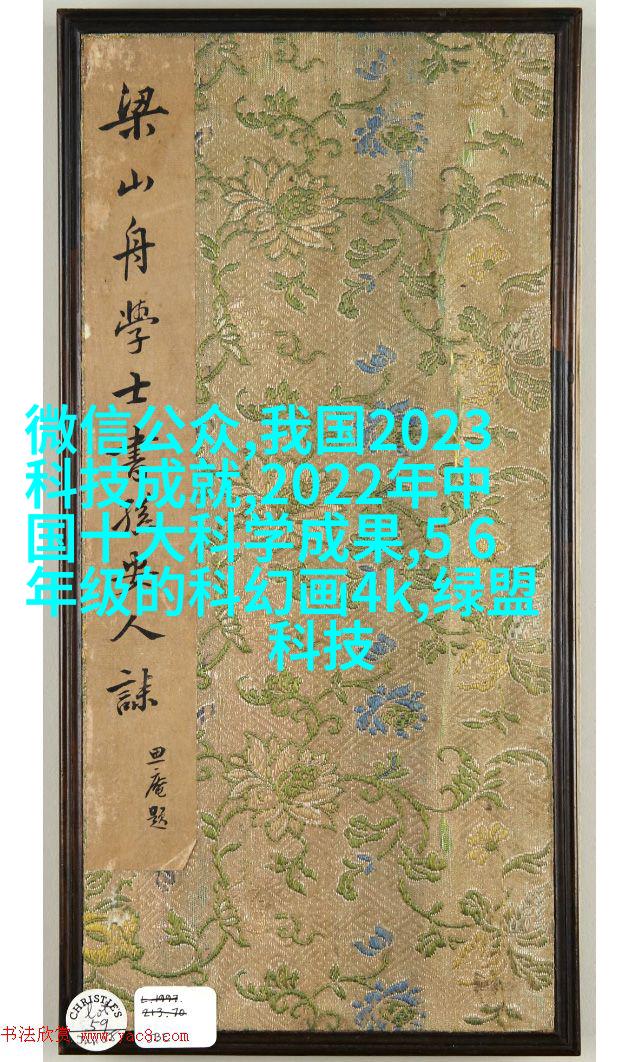 梁山舟學士書孫人誄
題
微信公众,我国2023
科技成就,2022年中
国十大科学成果,5 6
年级的科幻画4k,绿盟
科技
CHRISTIE'S
Lot
59
L.1997.
213.70
书法欣赏 www.yac8.com